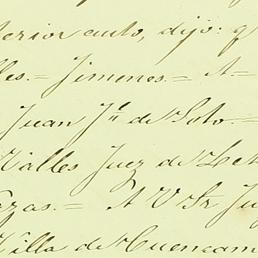 terior auto, dijo: q
les.= Jimenes.= A=
Juan Jé de Soto.=
Valles Juez de Let
azas.= A V Sr Ju
Villa de Cuencam